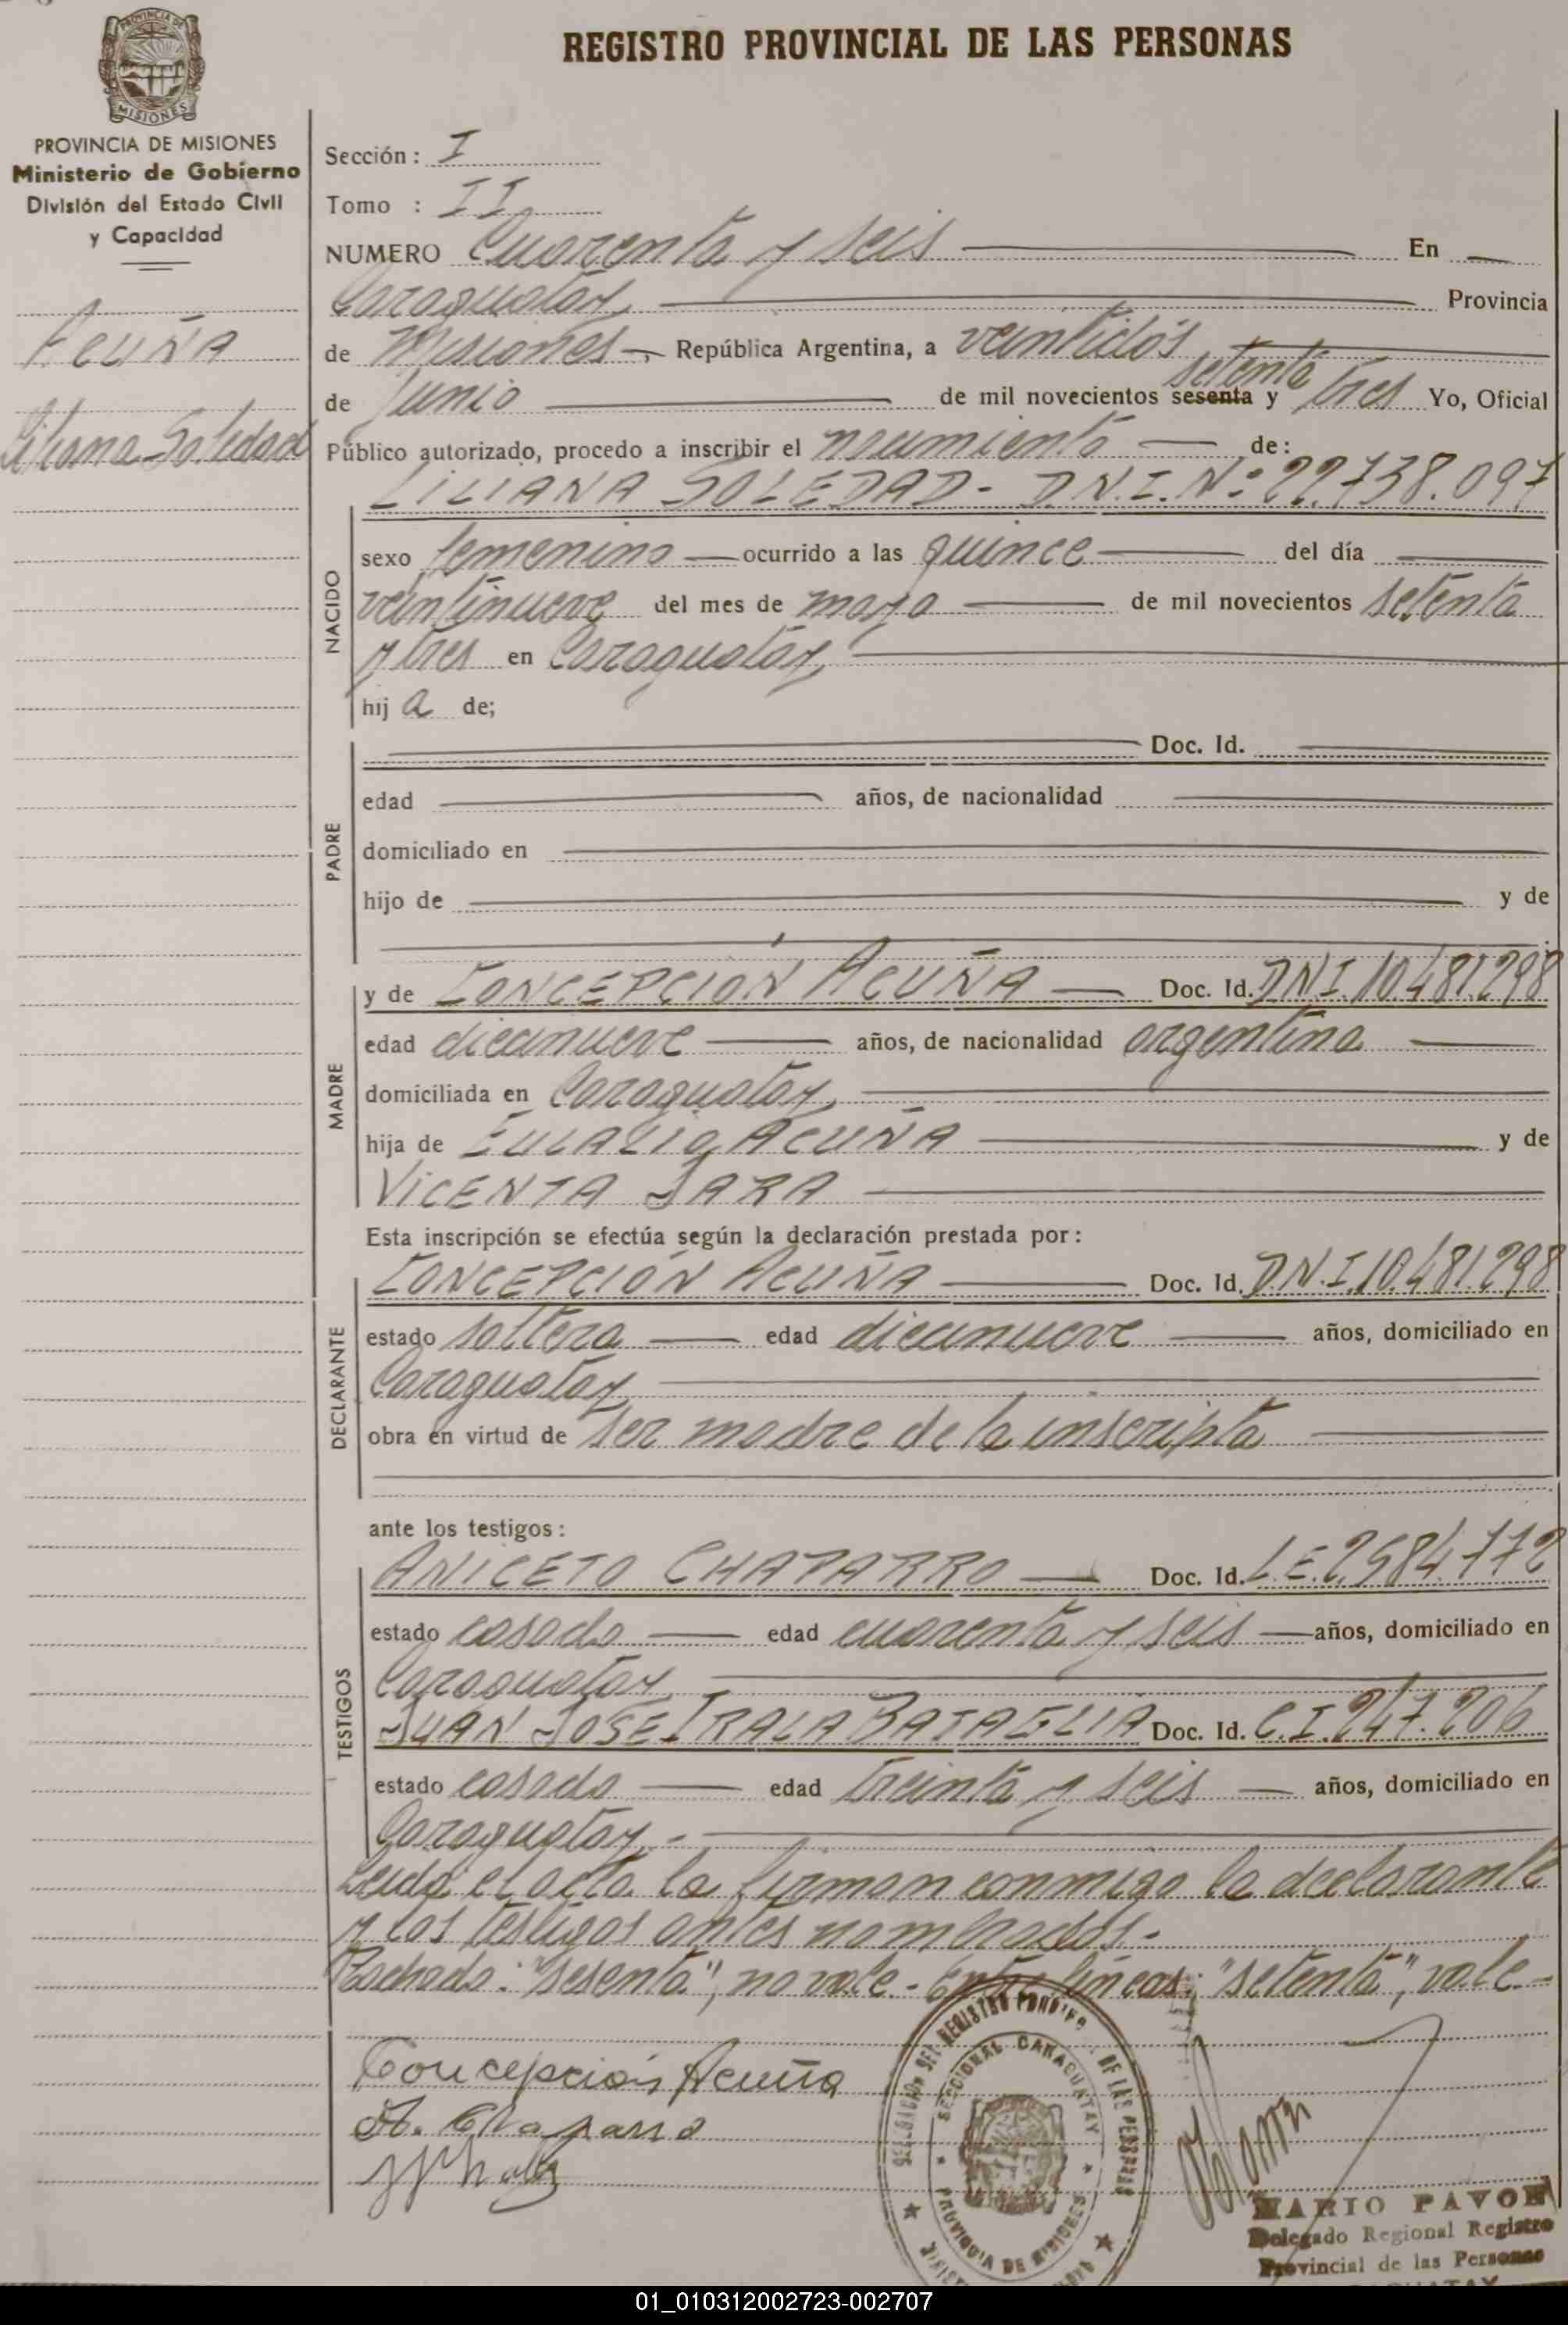 REGISTRO PROVINCIAL DE LAS PERSONAS
PROVINCIA DE
MISIONES
PROVINCIA DE MISIONES
Ministerio de Gobierno
División del Estado Civil
y Capacidad
Acuña
Liliana Soledad
Sección: I
Tomo : II
NUMERO Cuarenta y seis En
Caraguatay Provincia
de Misiones, República Argentina, a veintidós
setenta
de junio de mil novecientos sesenta y tres Yo, Oficial
Público autorizado, procedo a inscribir el nacimiento de:
LILIANA SOLEDAD- D.N.I.Nº 22.738.097
NACIDO
sexo femenino ocurrido a las quince del día
veintinueve del mes de mayo de mil novecientos setenta
y tres en Caraguatay
hij a de;
PADRE
Doc. Id.
edad años, de nacionalidad
domiciliado en
hijo de y de
MADRE
y de CONCEPCIÓN ACUÑA Doc. Id. D.N.I. 10.481.298
edad diecinueve años, de nacionalidad argentina
domiciliada en Caraguatay
hija de EULALIO ACUÑA y de
VICENTA JARA
Esta inscripción se efectúa según la declaración prestada por:
DECLARANTE
CONCEPCIÓN ACUÑA Doc. Id. D.N.I. 10.481.298
estado soltera edad diecinueve años, domiciliado en
Caraguatay
obra en virtud de ser madre de la inscripta
ante los testigos:
TESTIGOS
ANICETO CHAPARRO Doc. Id. L.E. 2.584.772
estado casado edad cuarenta y seis años, domiciliado en
Caraguatay
JUAN JOSE IRALA BATAGLIA Doc. Id. C.I. 247.206
estado casado edad treinta y seis años, domiciliado en
Caraguatay.-
Leída el acta la firman conmigo la declarante
y los testigos antes nombrados.-
Tachado: "sesenta", no vale.- Entre líneas: "setenta", vale-
Concepción Acuña
A. Chaparro
SECCIONAL CARAGUATAY
PROVINCIA DE MISIONES
DE LAS PERSONAS
MARIO PAVON
Delegado Regional Registro
Provincial de las Personas
01_010312002723-002707